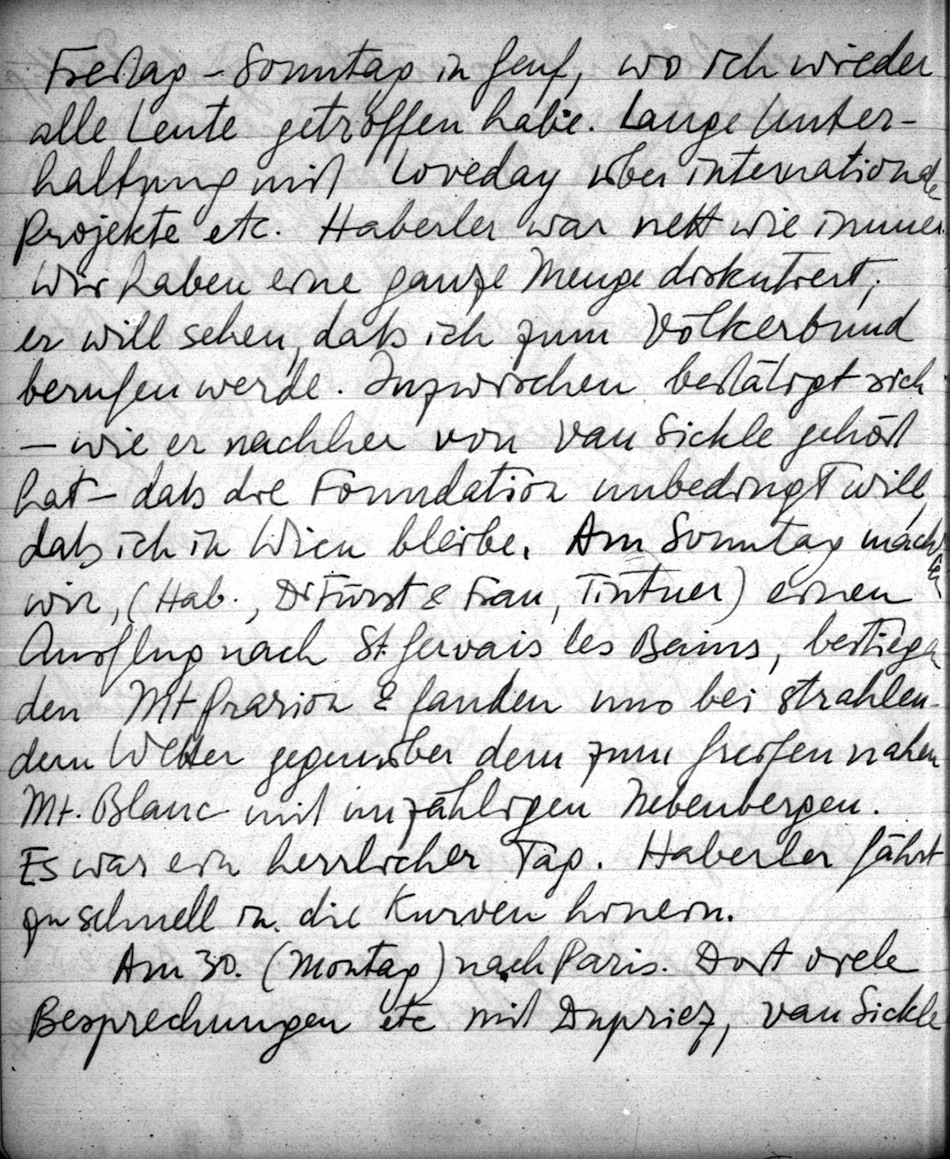 Freitag – Sonntag in Genf, wo ich wieder
alle Leute getroffen habe. Lange Unter-
haltung mit Loveday über internationale
Projekte etc. Haberler war nett wie immer.
Wir haben eine ganze Menge diskutiert;
er will sehen, dass ich zum Völkerbund
berufen werde. Inzwischen bestätigt sich
– wie er nachher von Van Sickle gehört
hat – dass die Foundation unbedingt will,
dass ich in Wien bleibe. Am Sonntag machten
wir, (Hab., Dr Fürst & Frau, Tintner) einen
Ausflug nach St. Gervais les Bains, bestiegen
den Mt Prarion & fanden uns bei strahlen-
dem Wetter gegenüber dem zum Greifen nahen
Mt. Blanc mit unzähligen Nebenbergen.
Es war ein herrlicher Tag. Haberler fährt
zu schnell in die Kurven hinein.
Am 30. (Montag) nach Paris. Dort viele
Besprechungen etc mit Dupriez, van Sickle